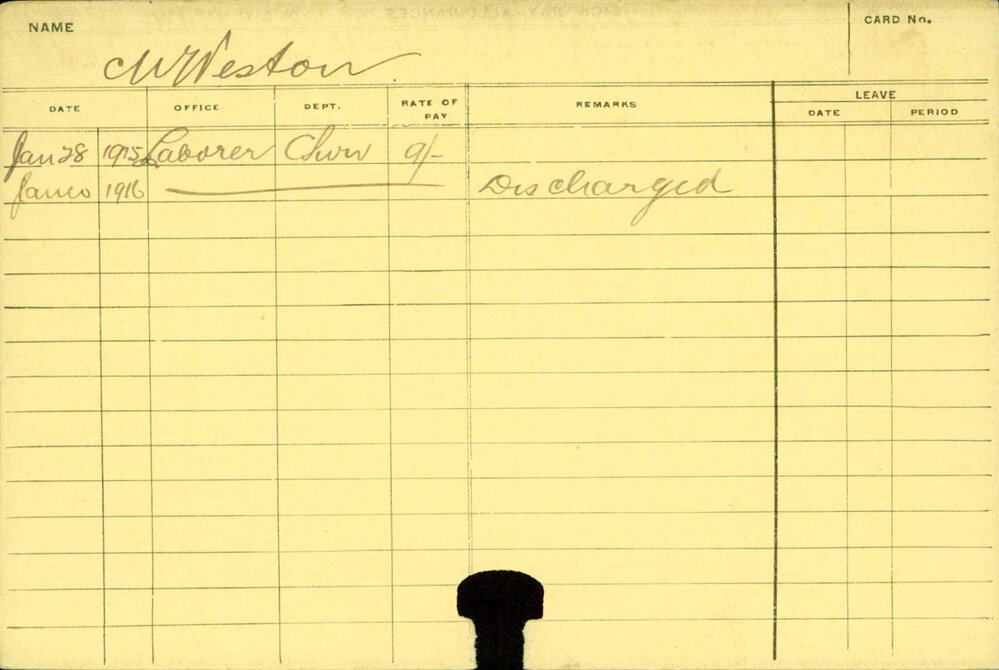 NAME
CARD No.
C W Weston
DATE OFFICE DEPT. RATE OF PAY REMARKS LEAVE
DATE PERIOD
Jan 28 1915 Laborer 9/-
Jan 10 1916 Discharged